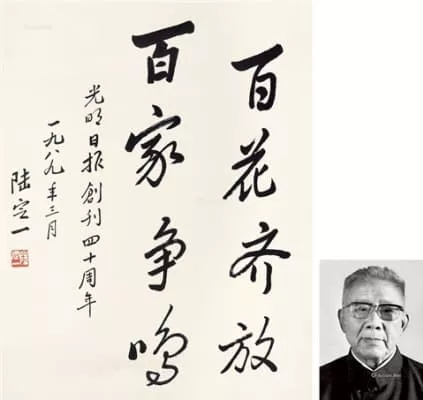 百花齐放
百家争鸣
光明日报创刊四十周年
一九八九年三月
陆定一